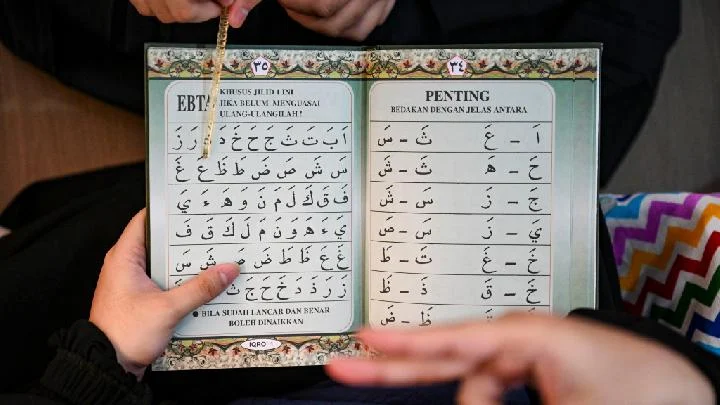 ٣٤
PENTING
BEDAKAN DENGAN JELAS ANTARA
اَ – عَ ثَ – سَ
حَ – هَ ثَ – شَ
جَ – زَ سَ – شَ
يَ – زَ سَ – صَ
خَ – غَ تَ – طَ
خَ – قَ ذَ – ظَ
ظَ – ضَ
٣٥
EBTA KHUSUS JILID 1 INI
JIKA BELUM MENGUASAI
ULANG-ULANGILAH !
اَ بَ تَ ثَ جَ حَ خَ دَ رَ زَ
سَ شَ صَ ضَ طَ ظَ عَ غَ
فَ قَ كَ لَ مَ نَ وَ هَ ءَ يَ
يَ ءَ هَ وَ نَ مَ لَ كَ قَ فَ
غَ عَ ظَ طَ ضَ صَ شَ سَ
زَ رَ ذَ دَ خَ حَ جَ ثَ
● BILA SUDAH LANCAR DAN BENAR
BOLEH DINAIKKAN
IQRO